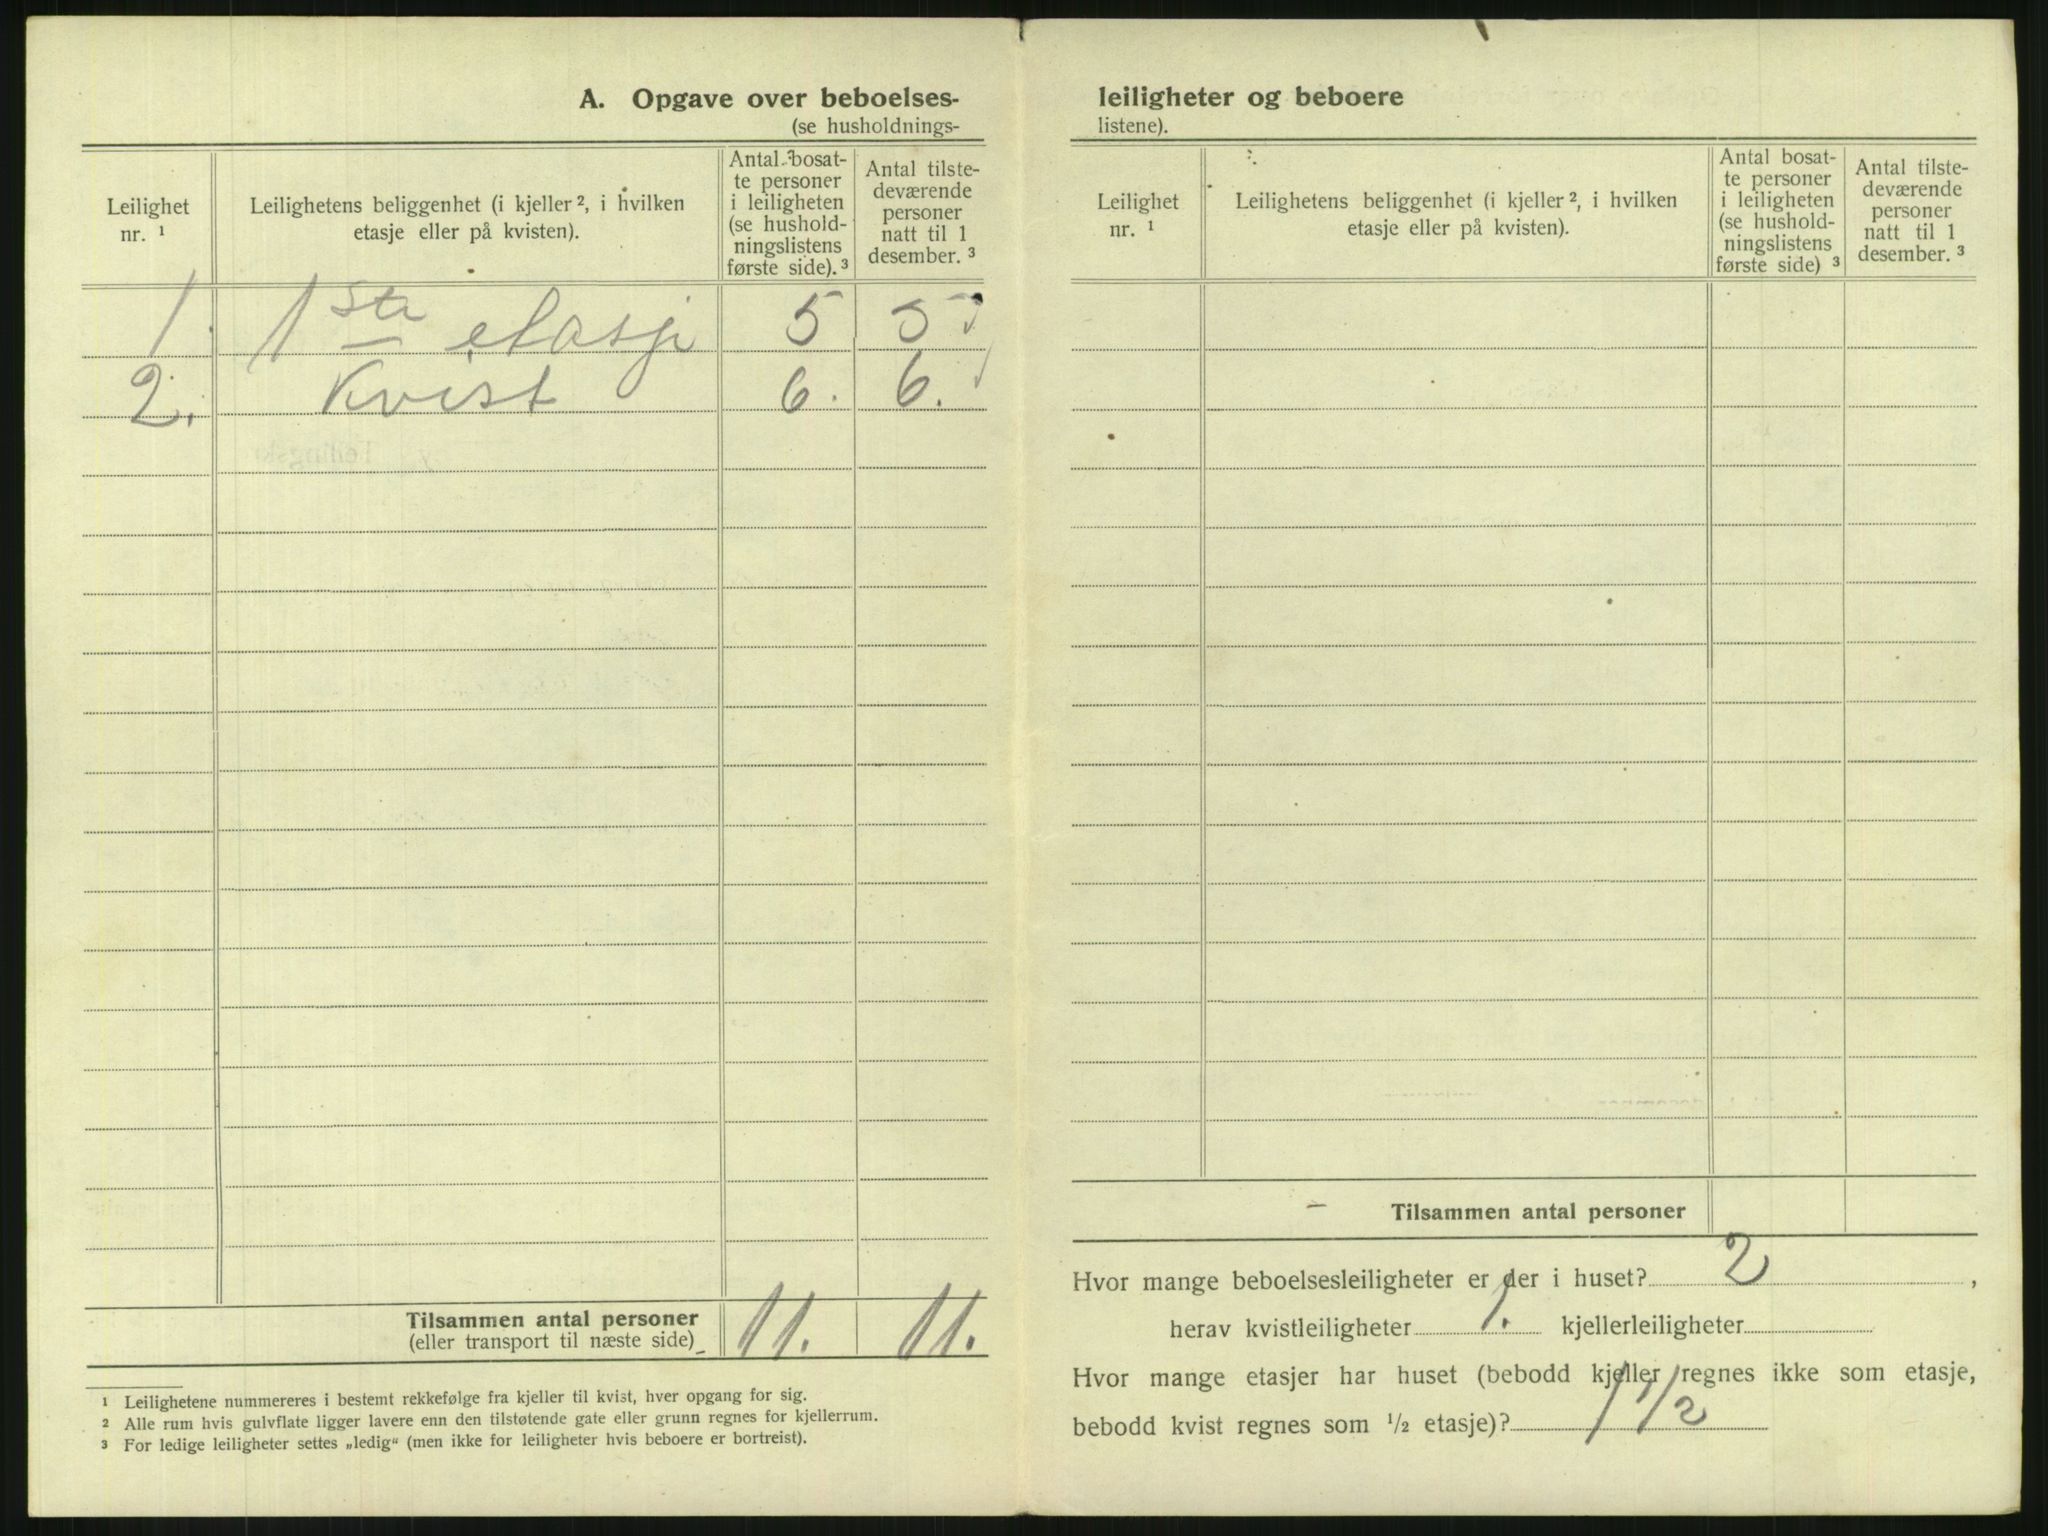 A. Opgave over beboelses-
(se husholdnings-
Leilighet
nr. ¹
Leilighetens beliggenhet (i kjeller ², i hvilken
etasje eller på kvisten).
Antal bosat-
te personer
i leiligheten
(se hushold-
ningslistens
første side). ³
Antal tilste-
deværende
personer
natt til 1
desember. ³
1. 1ste etasje 5 5
2. Kvist 6. 6.
Tilsammen antal personer 11. 11.
(eller transport til næste side)
¹ Leilighetene nummereres i bestemt rekkefølge fra kjeller til kvist, hver opgang for sig.
² Alle rum hvis gulvflate ligger lavere enn den tilstøtende gate eller grunn regnes for kjellerrum.
³ For ledige leiligheter settes „ledig“ (men ikke for leiligheter hvis beboere er bortreist).
leiligheter og beboere
listene).
Leilighet
nr. ¹
Leilighetens beliggenhet (i kjeller ², i hvilken
etasje eller på kvisten).
Antal bosat-
te personer
i leiligheten
(se hushold-
ningslistens
første side) ³
Antal tilste-
deværende
personer
natt til 1
desember. ³
Tilsammen antal personer
Hvor mange beboelsesleiligheter er der i huset? 2 ,
herav kvistleiligheter 1. kjellerleiligheter
Hvor mange etasjer har huset (bebodd kjeller regnes ikke som etasje,
bebodd kvist regnes som ½ etasje)? 1 1/2